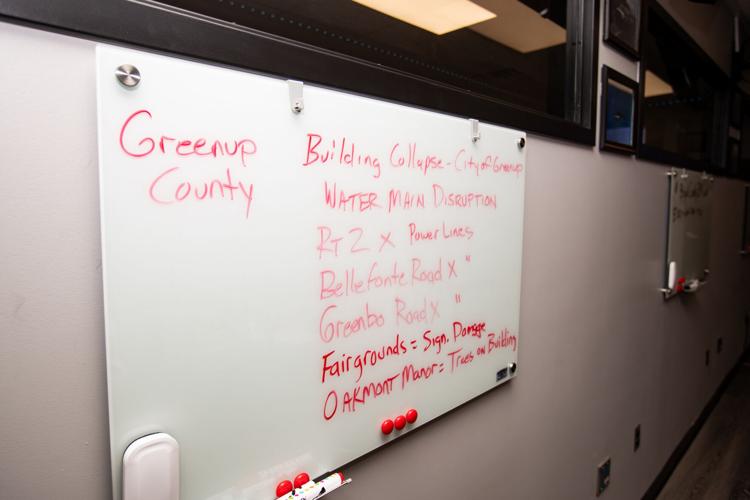 Greenup
County
Building Collapse - City of Greenup
WATER MAIN DISRUPTION
RT 2 X Power Lines
Bellefonte Road X "
Greenbo Road X "
Fairgrounds = Sign. Damage
OAKMONT Manor = Trees on Building